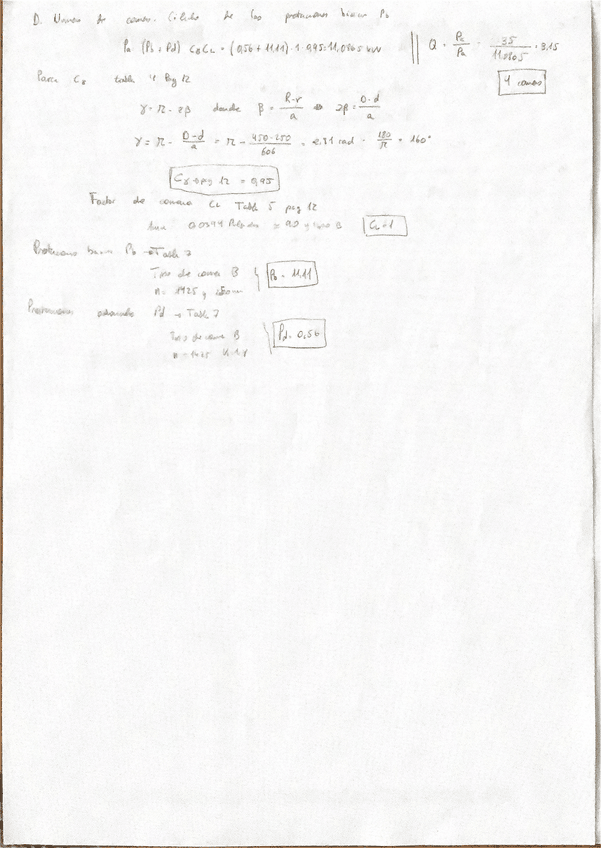 D. Numero de correas. Calculo de las prestaciones básicas Pb
Pa (Pb + Pd) Cγ CL = (0,56 + 11,11) · 1 · 0,95 = 11,0865 kW
Q = Pc/Pa = 35/11,0865 = 3,15
4 correas
Para Cγ tabla 4 Pag 12
γ = π - 2β donde β = (R-r)/a ⇔ 2β = (D-d)/a
γ = π - (D-d)/a = π - (450-250)/606 = 2.81 rad · 180/π = 160°
Cγ pag 12 = 0,95
Factor de correa CL Tabla 5 pag 12
CL = 1
Prestaciones básicas Pb → Tabla 7
Tipo de correa B
Pb = 11,11
n = 1425 y 250mm
Prestaciones adicionales Pd → Tabla 7
Tipo de correa B
Pd = 0,56
n = 1425